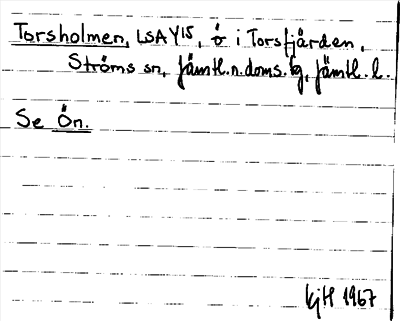 Torsholmen, LSA Y15, ö i Torsfjärden,
Ströms sn, Jämtl. n. doms. tg, Jämtl. l.
Se Ön.
KJH 1967